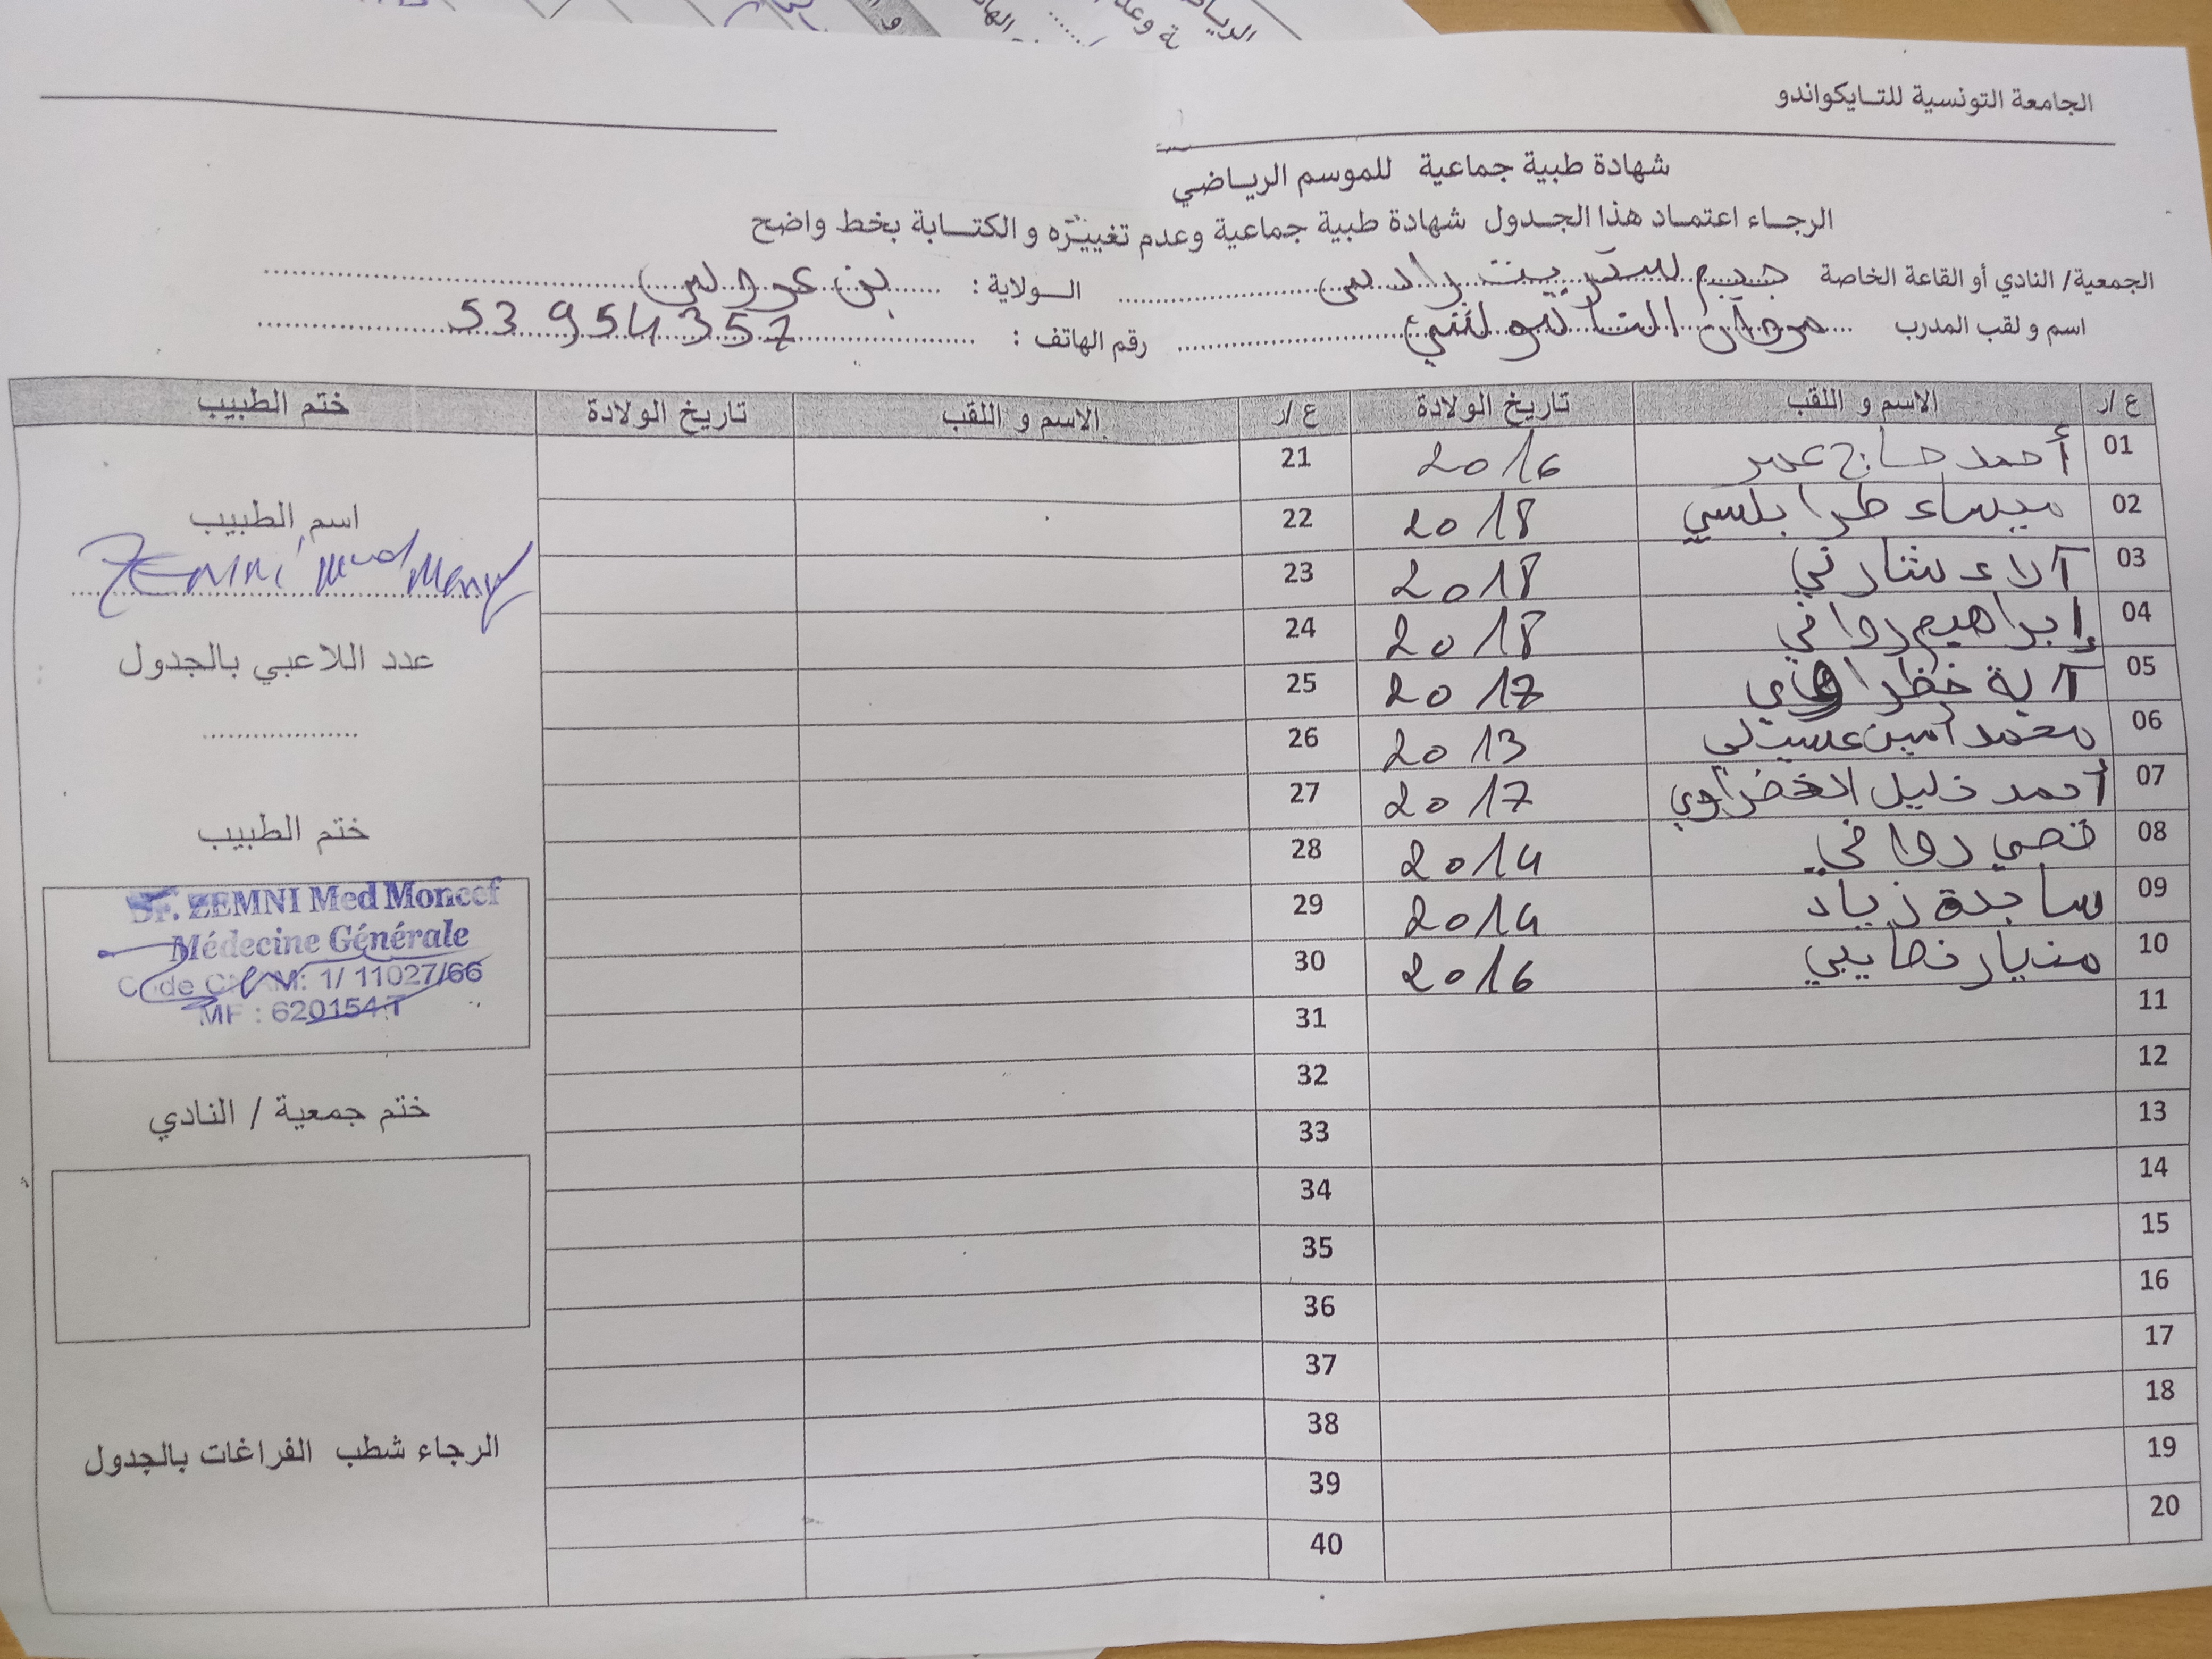 الجامعة التونسية للتايكواندو
شهادة طبية جماعية للموسم الرياضي
الرجاء اعتماد هذا الجدول شهادة طبية جماعية وعدم تغييره و الكتابة بخط واضح
الجمعية/ النادي أو القاعة الخاصة جيم سبيريت رادس الولاية : بن عروس
اسم و لقب المدرب مروان رقم الهاتف : 53 954 357
ع /ر الاسم و اللقب تاريخ الولادة ع /ر الاسم و اللقب تاريخ الولادة ختم الطبيب
01 أحمد حاج عمر 2016 21
02 ميساء طرابلسي 2018 22
03 آلاء شارني 2018 23
04 إبراهيم روافي 2018 24
05 آية 2017 25
06 محمد أمين 2013 26
07 أحمد خليل الخضراوي 2017 27
08 قصي روافي 2014 28
09 ساجدة زياد 2014 29
10 2016 30
11 31
12 32
13 33
14 34
15 35
16 36
17 37
18 38
19 39
20 40
اسم الطبيب
ZEMNI Med Moncef
عدد اللاعبي بالجدول
ختم الطبيب
Dr. ZEMNI Med Moncef
Médecine Générale
Code CNAM: 1/ 11027/66
MF : 620154 T
ختم جمعية / النادي
الرجاء شطب الفراغات بالجدول